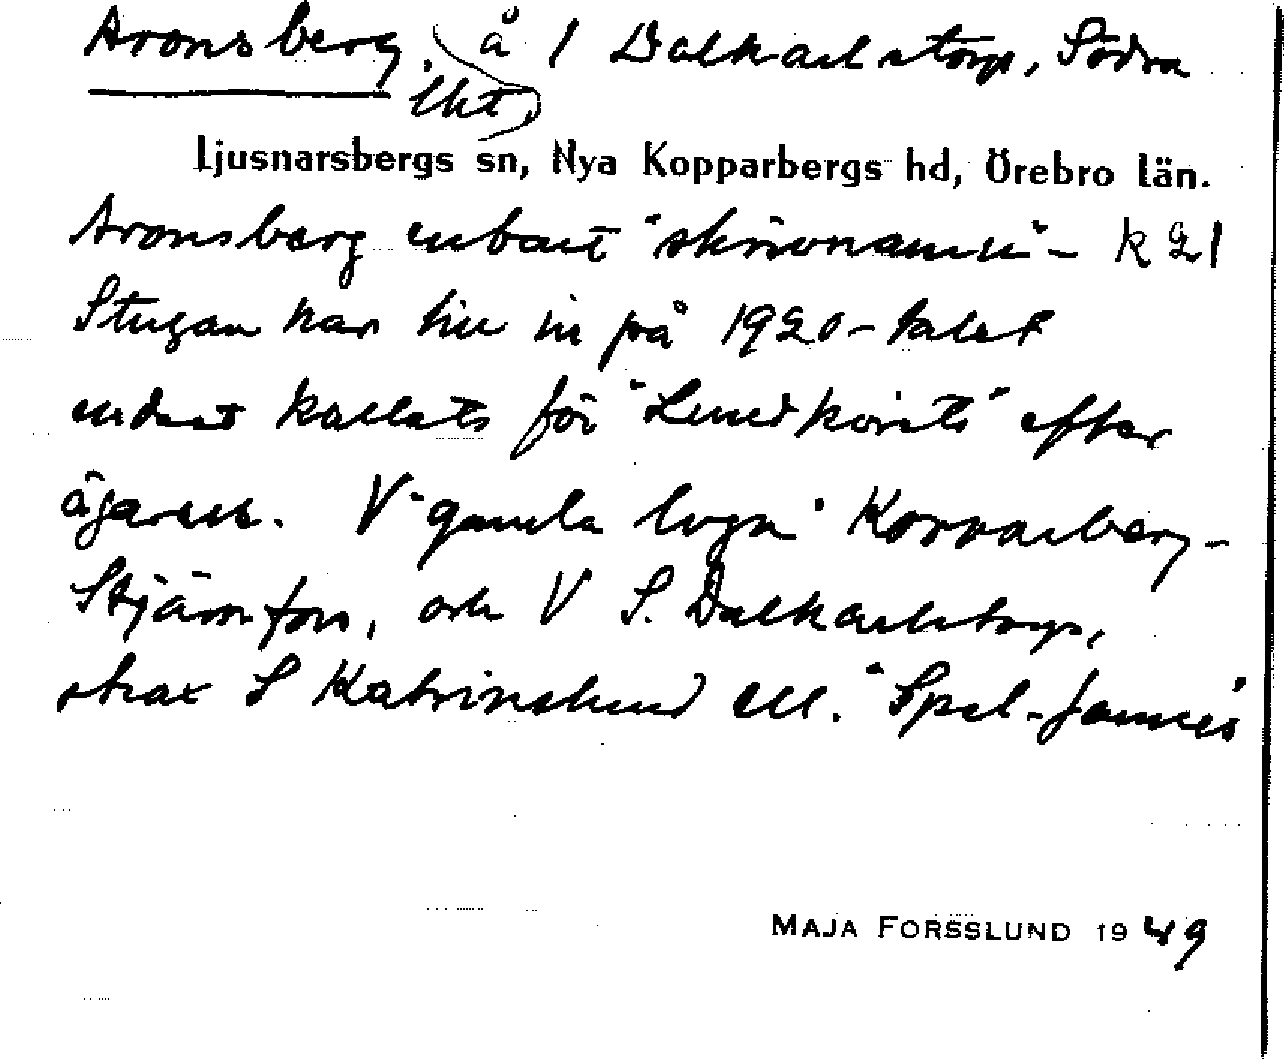 Aronsberg, å 1 Dalkarlstorp, Södra
lht,
Ljusnarsbergs sn, Nya Kopparbergs hd, Örebro län.
Aronsberg enbart "skrivnamn" – k 21
Stugan har hit in på 1920-talet
endast kallats för "Lundkvists" efter
ägaren. V "gamla lvgn" Kopparberg-
Stjärnfors, och V S. Dalkarlstorp,
strax S Katrinelund ell. "Spel-Jannes"
MAJA FORSSLUND 1949